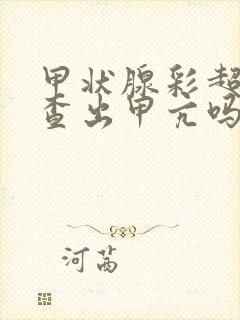 甲状腺彩超
查出甲亢吗
河茜